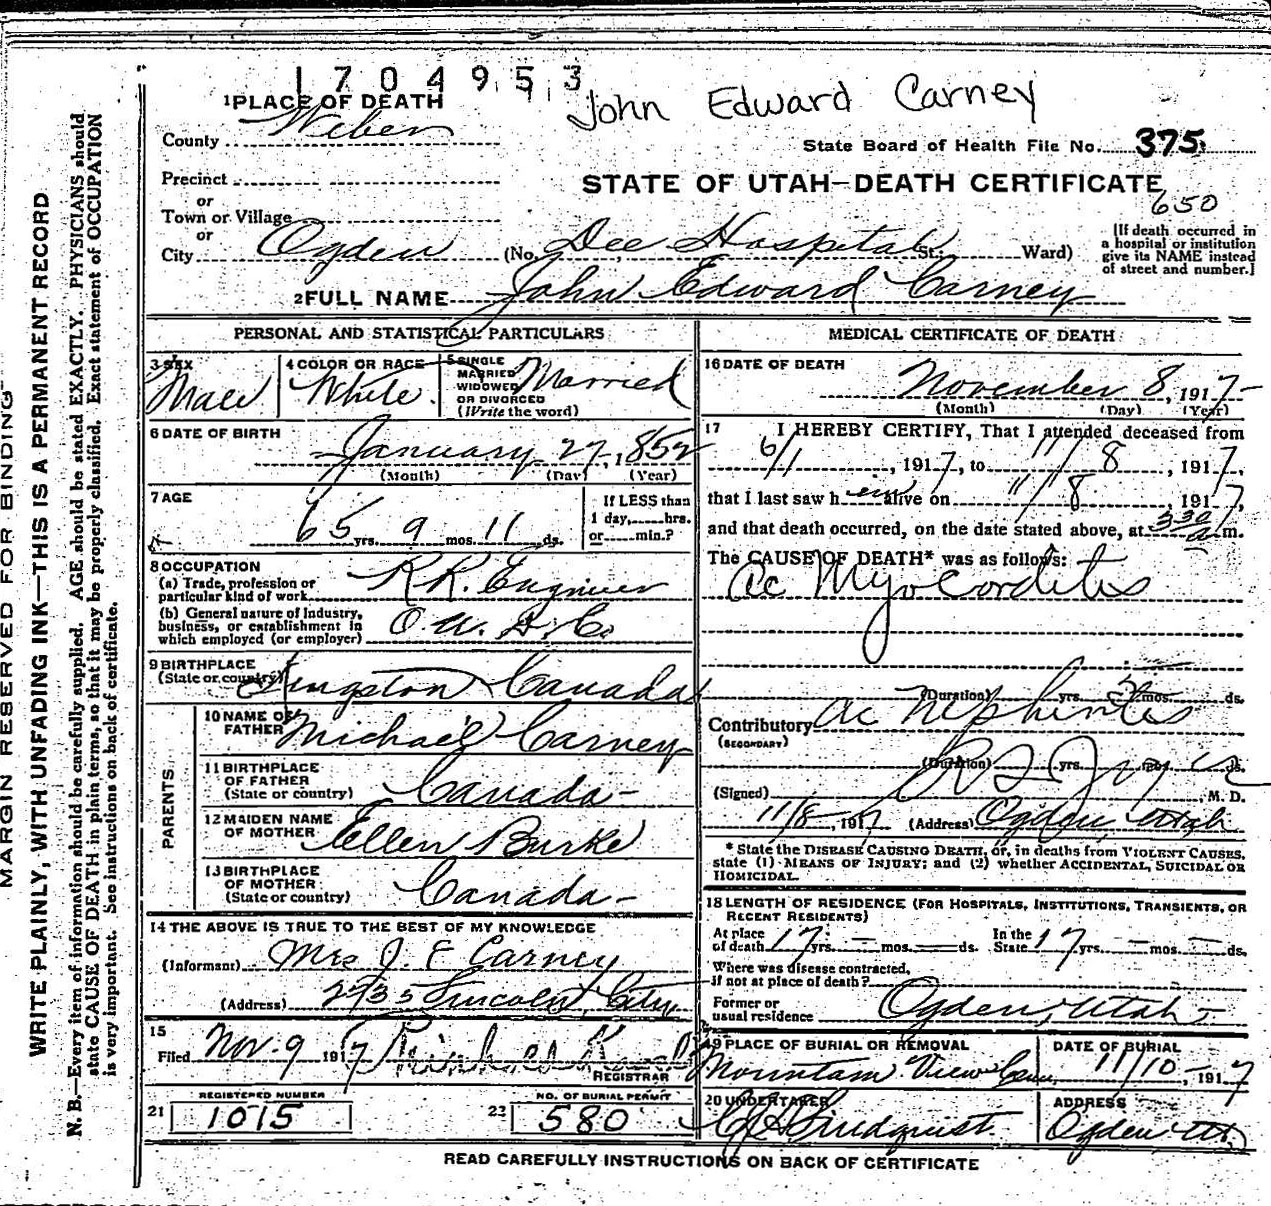 1704953
John Edward Carney
1 PLACE OF DEATH
County Weber
State Board of Health File No. 375
Precinct
STATE OF UTAH—DEATH CERTIFICATE
or
650
Town or Village
or
City Ogden (No. Dee Hospital St.; Ward)
[If death occurred in
a hospital or institution
give its NAME instead
of street and number.]
2 FULL NAME John Edward Carney
PERSONAL AND STATISTICAL PARTICULARS
3 SEX
Male
4 COLOR OR RACE
White
5 SINGLE
MARRIED
WIDOWED
OR DIVORCED
(Write the word)
Married
6 DATE OF BIRTH
January 27, 1852
(Month) (Day) (Year)
7 AGE
65 yrs. 9 mos. 11 ds.
If LESS than
1 day, hrs.
or min.?
8 OCCUPATION
(a) Trade, profession or
particular kind of work R.R. Engineer
(b) General nature of Industry,
business, or establishment in
which employed (or employer)
9 BIRTHPLACE
(State or country) Kingston Canada
PARENTS
10 NAME OF
FATHER Michael Carney
11 BIRTHPLACE
OF FATHER
(State or country) Canada-
12 MAIDEN NAME
OF MOTHER Ellen Burke
13 BIRTHPLACE
OF MOTHER
(State or country) Canada-
14 THE ABOVE IS TRUE TO THE BEST OF MY KNOWLEDGE
(Informant) Mrs J. E Carney
(Address) 2735 Lincoln, City
15
Filed Nov. 9 1917
REGISTRAR
REGISTERED NUMBER
21 1015
NO. OF BURIAL PERMIT
22 580
MEDICAL CERTIFICATE OF DEATH
16 DATE OF DEATH
November 8, 1917-
(Month) (Day) (Year)
17 I HEREBY CERTIFY, That I attended deceased from
6/1, 1917, to 11/8, 1917,
that I last saw him alive on 11/8, 1917,
and that death occurred, on the date stated above, at 330 a m.
The CAUSE OF DEATH* was as follows:
ac Myocorditis
(Duration) yrs. mos. ds.
Contributory ac Nephritis
(SECONDARY)
(Duration) yrs. ds.
(Signed) M. D.
11/8, 1917 (Address) Ogden Utah
* State the DISEASE CAUSING DEATH, or, in deaths from VIOLENT CAUSES,
state (1) MEANS OF INJURY; and (2) whether ACCIDENTAL, SUICIDAL OR
HOMICIDAL.
18 LENGTH OF RESIDENCE (FOR HOSPITALS, INSTITUTIONS, TRANSIENTS, OR
RECENT RESIDENTS)
At place
of death 17 yrs. - mos. - ds.
In the
State 17 yrs. - mos. - ds.
Where was disease contracted,
if not at place of death?
Former or
usual residence Ogden, Utah-
19 PLACE OF BURIAL OR REMOVAL
Mountain View Cem.
DATE OF BURIAL
11/10-, 1917
20 UNDERTAKER
Lindquist
ADDRESS
Ogden Ut.
READ CAREFULLY INSTRUCTIONS ON BACK OF CERTIFICATE
MARGIN RESERVED FOR BINDING
WRITE PLAINLY, WITH UNFADING INK—THIS IS A PERMANENT RECORD
N. B.—Every item of information should be carefully supplied. AGE should be stated EXACTLY. PHYSICIANS should
state CAUSE OF DEATH in plain terms, so that it may be properly classified. Exact statement of OCCUPATION
is very important. See instructions on back of certificate.